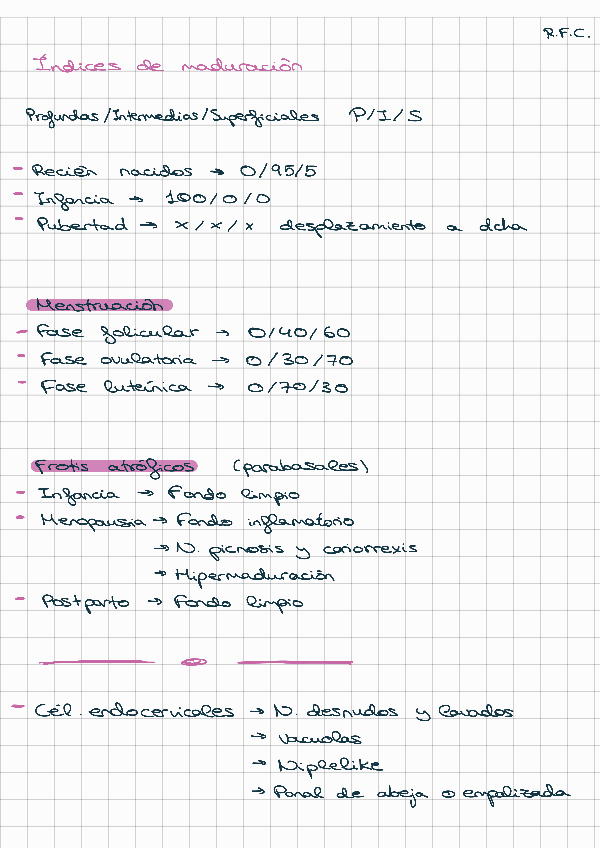 R.F.C.
Índices de maduración
Profundas/Intermedias/Superficiales P/I/S
- Recién nacidos → 0/95/5
- Infancia → 100/0/0
- Pubertad → x/x/x desplazamiento a dcha
Menstruación
- Fase folicular → 0/40/60
- Fase ovulatoria → 0/30/70
- Fase luteínica → 0/70/30
Frotis atróficos (parabasales)
- Infancia → Fondo limpio
- Menopausia → Fondo inflamatorio
→ N. picnosis y cariorrexis
→ Hipermaduración
- Postparto → Fondo limpio
- Cél. endocervicales → N. desnudos y lavados
→ Vacuolas
→ Niplelike
→ Panal de abeja o empalizada